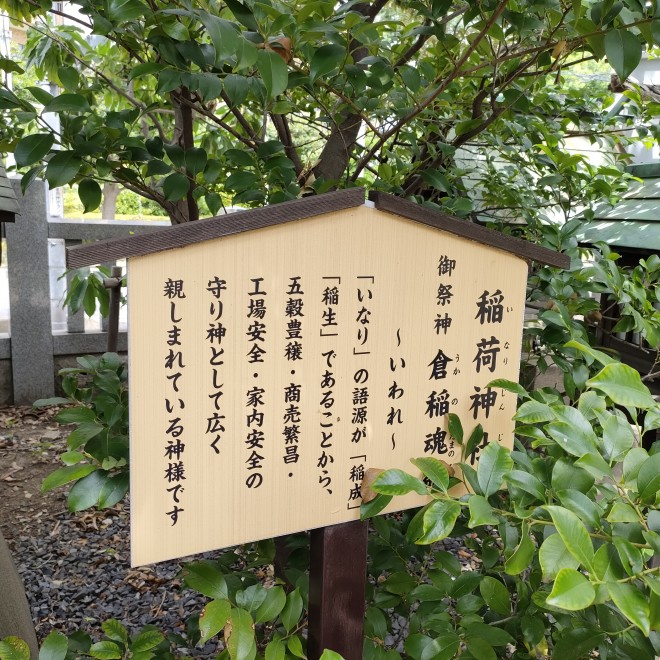 稲荷神社
いなりじんじ
御祭神 倉稲魂
うかのみたまの
~いわれ~
「いなり」の語源が「稲成」
「稲生」であることから、
五穀豊穣・商売繁昌・
工場安全・家内安全の
守り神として広く
親しまれている神様です